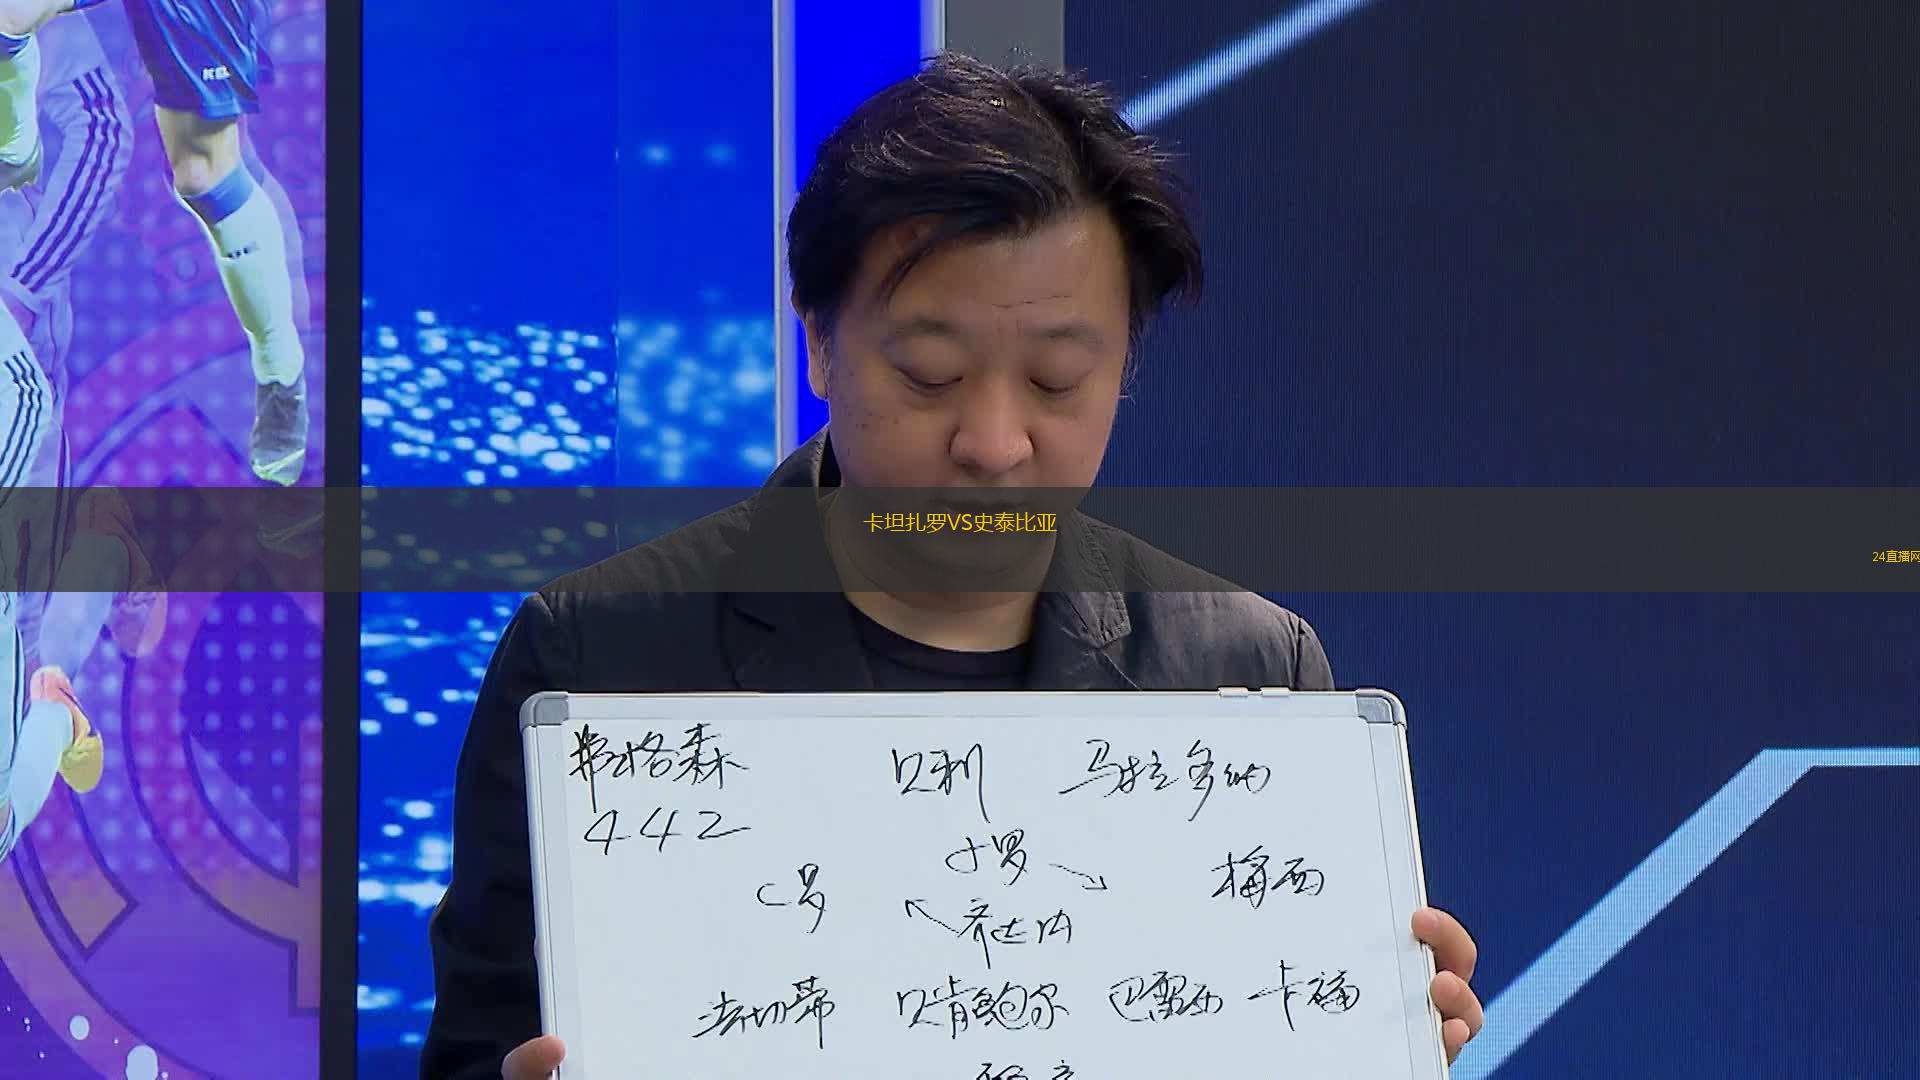 KEL
卡坦扎罗VS史泰比亚
24直播网
弗格森 贝利 马拉多纳
442
小罗
C罗 梅西
齐达内
法切蒂 贝肯鲍尔 巴雷西 卡福